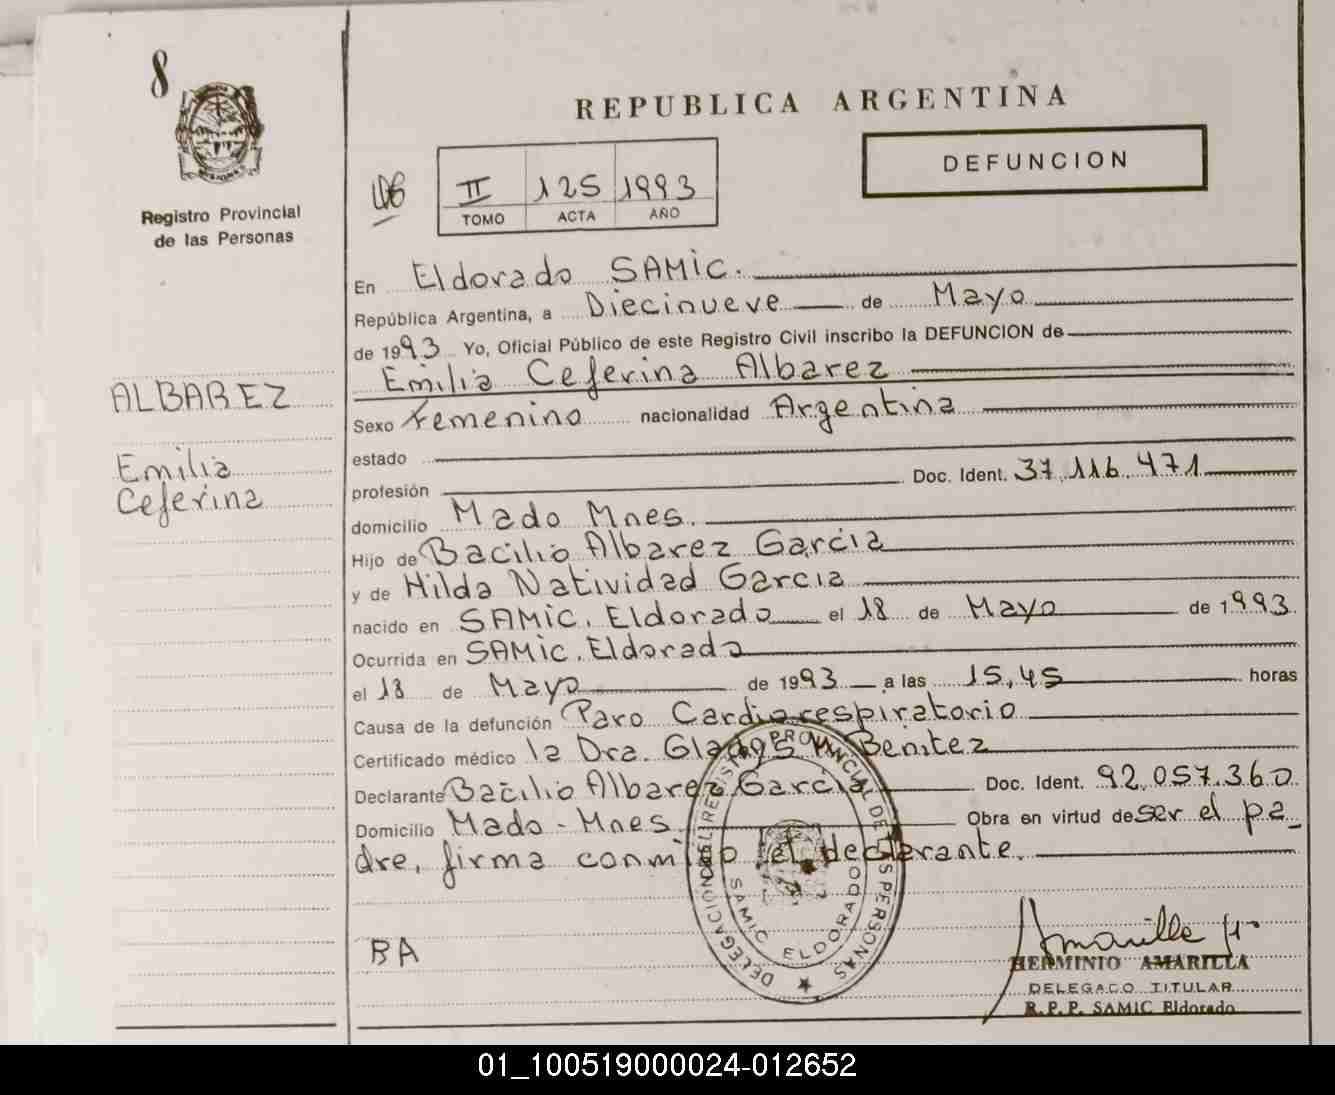 8
REPUBLICA ARGENTINA
DEFUNCION
II 125 1993
TOMO ACTA AÑO
Registro Provincial
de las Personas
En Eldorado SAMiC.
República Argentina, a Diecinueve de Mayo
de 1993 Yo, Oficial Público de este Registro Civil inscribo la DEFUNCION de
ALBAREZ
Emilia Ceferina Albarez
Sexo Femenino nacionalidad Argentina
estado
Emilia
Ceferina
profesión Doc. Ident. 37.116.471
domicilio Mado Mnes.
Hijo de Bacilio Albarez Garcia
y de Hilda Natividad Garcia
nacido en SAMiC. Eldorado el 18 de Mayo de 1993.
Ocurrida en SAMiC. Eldorado
el 18 de Mayo de 1993 a las 15,45 horas
Causa de la defunción Paro Cardiorespiratorio
Certificado médico la Dra. Gladys Benitez
Declarante Bacilio Albarez Garcia Doc. Ident. 92.057.360
Domicilio Mado - Mnes. Obra en virtud de ser el pa_
dre, firma conmigo el declarante.
DELEGACION DEL REGISTRO PROVINCIAL DE LAS PERSONAS
SAMIC ELDORADO
BA
HERMINIO AMARILLA
DELEGADO TITULAR
R.P.P. SAMIC Eldorado
01_100519000024-012652